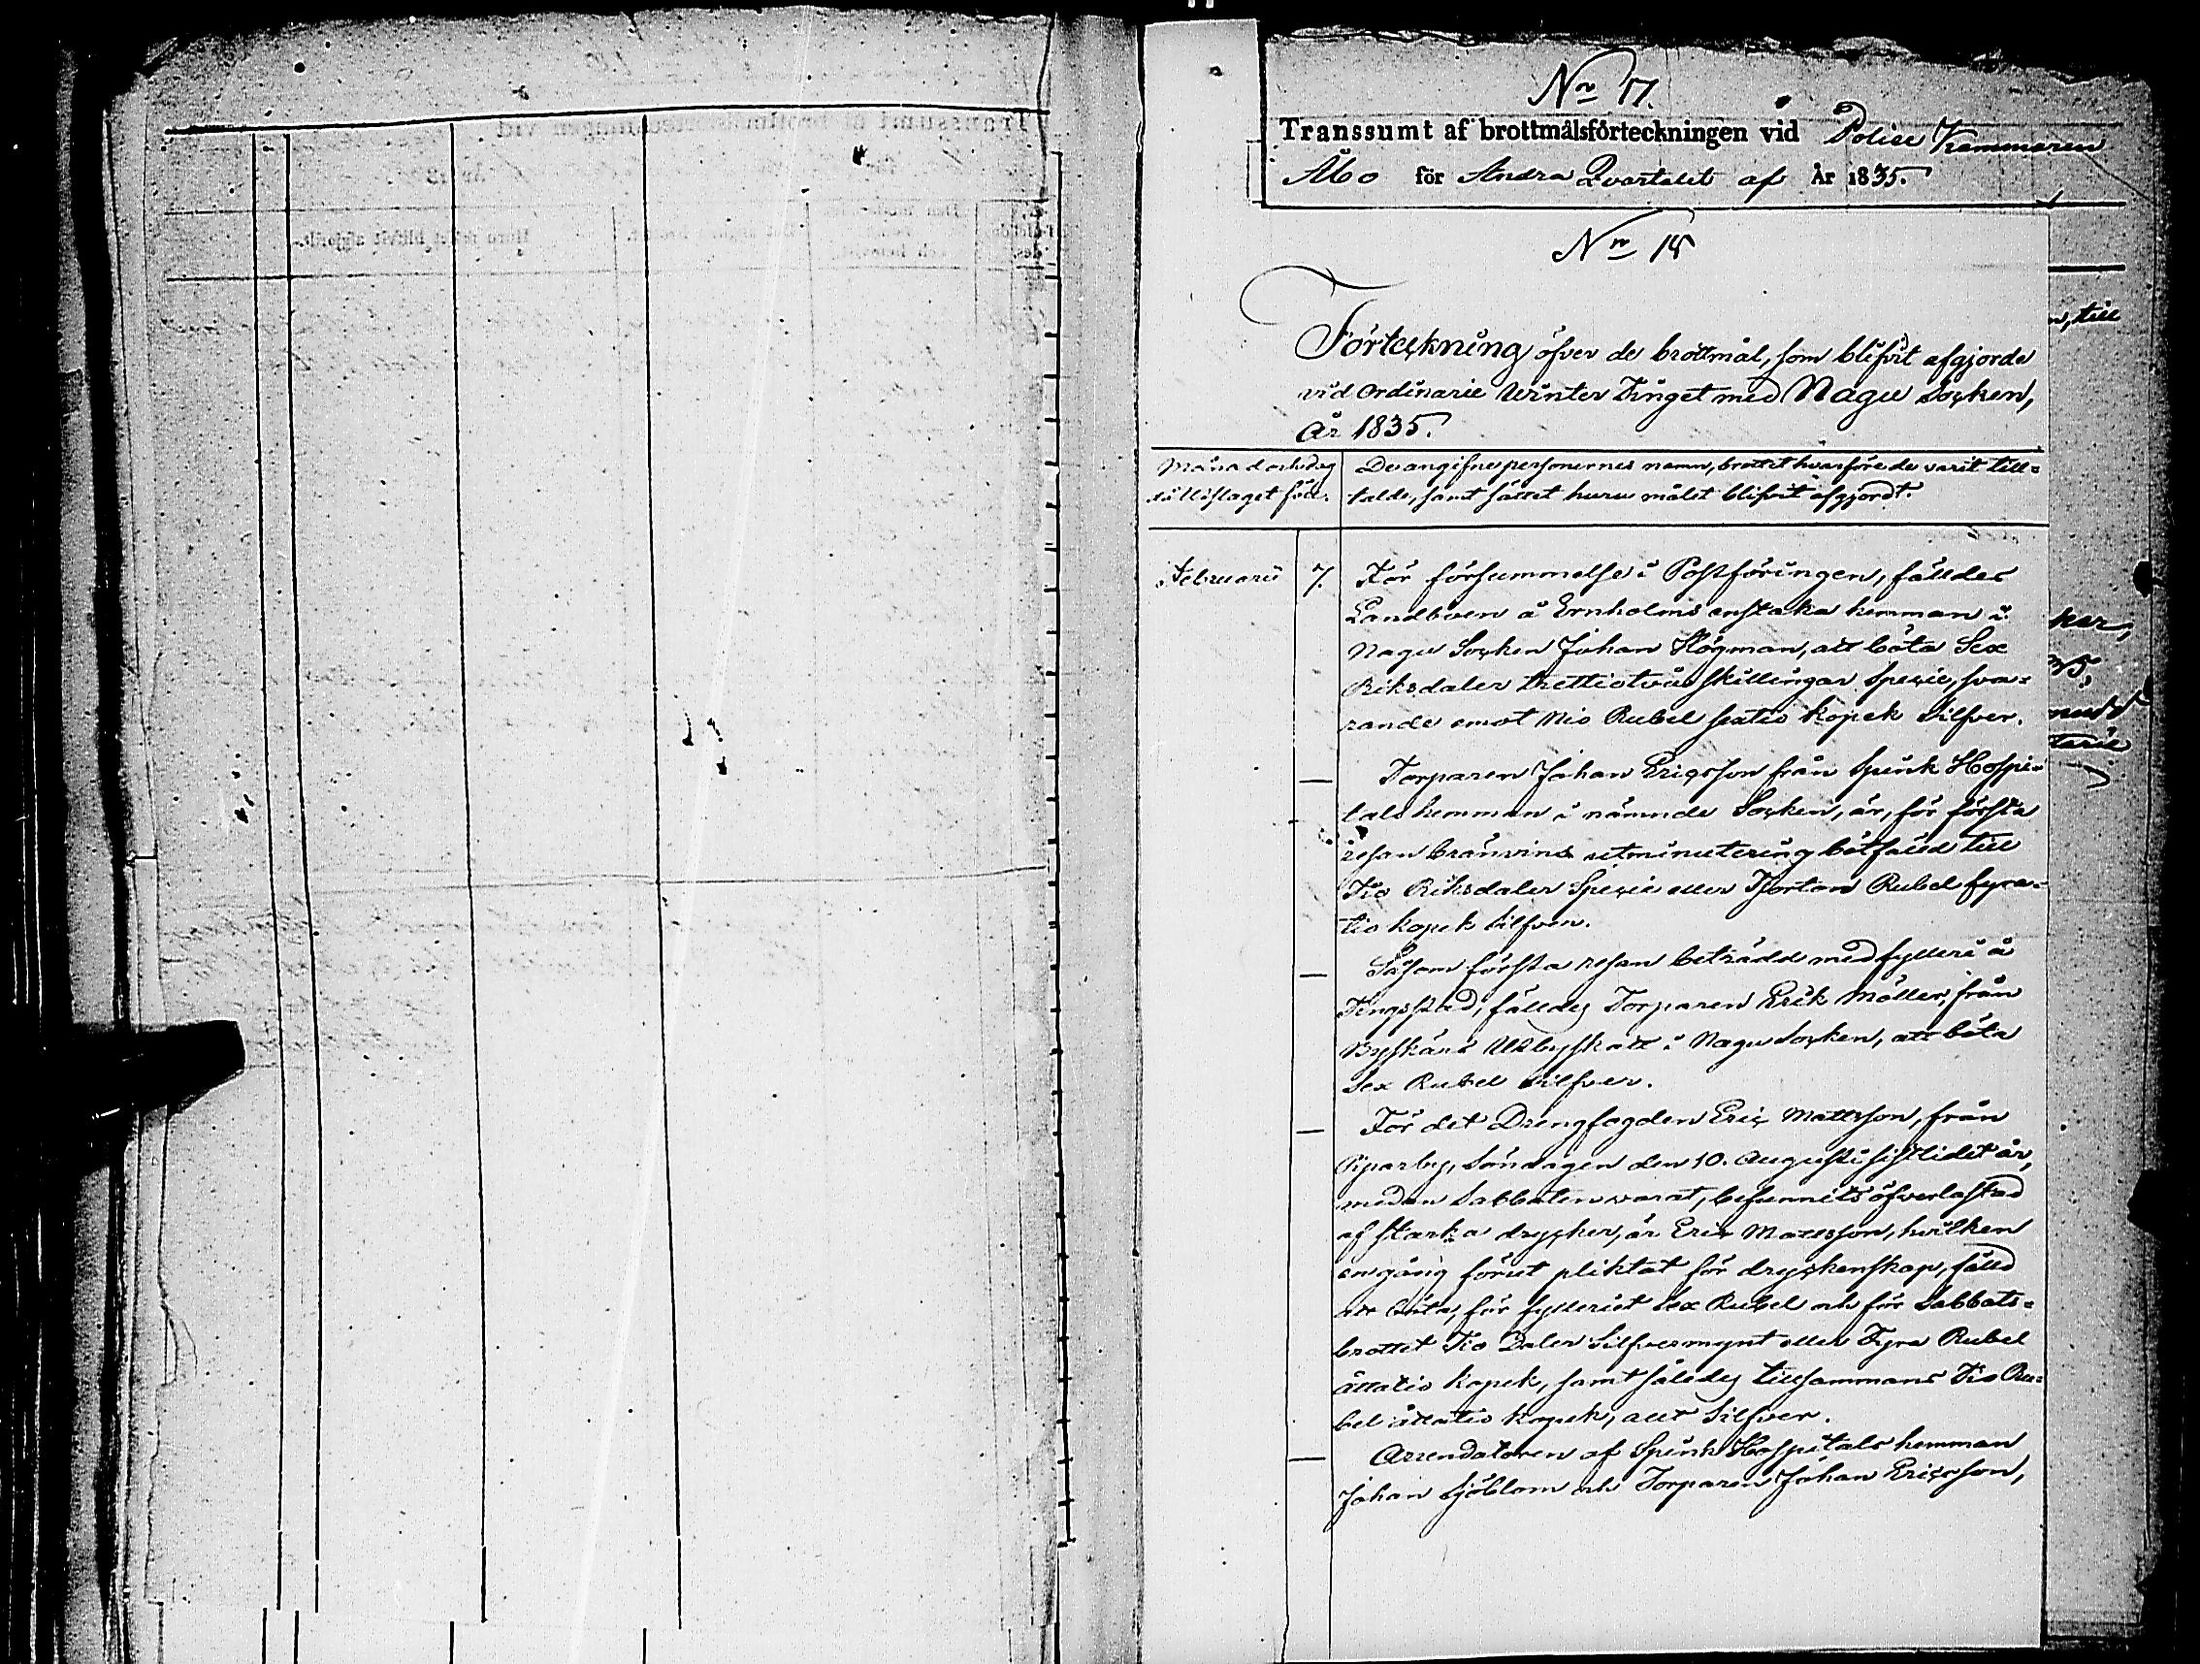 No 17.
Transsumt af brottmålsförteckningen vid Polise Kammaren
Åbo för Andra Qvartalet af År 1835.
No 18
Förteckning öfver de brottmål, som blifvit afgjorde
vid Ordinarie Winter Tinget med Nagu Socken,
År 1835.
Månad och dag
då Utslaget föll.
De angifne personernes namn, brottet hvarföre de varit till-
talde, samt sättet huru målet blifvit afgjordt.
Februarii 7. För försummelse i Postföringen, fälldes
Landboen å Ernholms enstaka hemman i
Nagu Socken Johan Högman, att böta Sex
Riksdaler trettiotvå skillingar Specie, sva-
rande emot Nio Rubel sextio kopek Silfver.
— Torparen Johan Ericsson från Spink Hospi-
tals hemman i nämnde Socken, är, för första
resan bränvins utminutering bötfälld till
Tio Riksdaler Specie eller Fjorton Rubel fyra-
tio kopek Silfver.
— Såsom första resan beträdd med fylleri å
Tingsstad, fälldes Torparen Erik Möller, från
Byskärs Utbyskatt i Nagu Socken, att böta
Sex Rubel Silfver.
— För det Drengfogden Eric Mattsson, från
Piparby, Söndagen den 10. Augusti sistlidet år,
medan Sabbaten warat, befunnits öfverlastad
af starka drycker, är Eric Mattsson, hvilken
en gång förut pliktat för dryckenskap, fälld
att böta, för fylleriet Sex Rubel och för Sabbats-
brottet Tio Daler Silfvermynt eller Fyra Rubel
åttatio kopek, samt således tillsammans Tio Ru-
bel åttatio kopek, allt Silfver.
— Arrendatoren af Spink Hospitals hemman
Johan Sjöblom och Torparen Johan Ericsson,
till